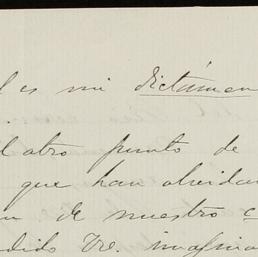 l es mi dictámen
.
l otro punto de
que han olvidan
n de nuestro c
dido Vre. imagina